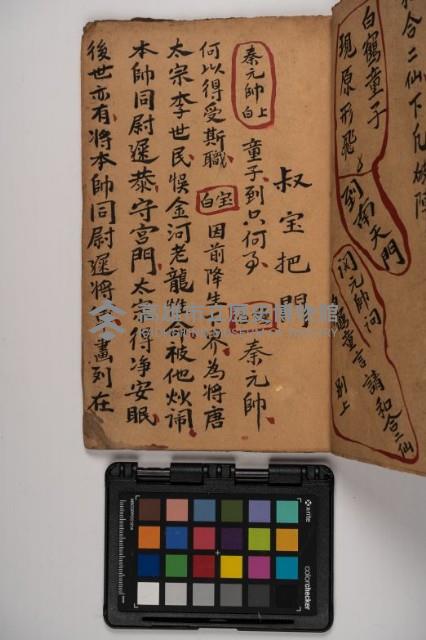 和合二仙下凡
白鶴童子
現原形飛
到南天門
元帥
童言請和合二仙
別上
叔宝把門
秦元帥上白 童子到只何 秦元帥
何以得受斯職 宝白 因前降生 界為將唐
太宗李世民悞金河老龍 命被他炒
本帥同尉遲恭守宮門太宗得净安眠
後世亦有將本帥同尉遲將 畫列在
高雄市立歷史博物館
KAOHSIUNG MUSEUM OF HISTORY
x-rite
colorchecker